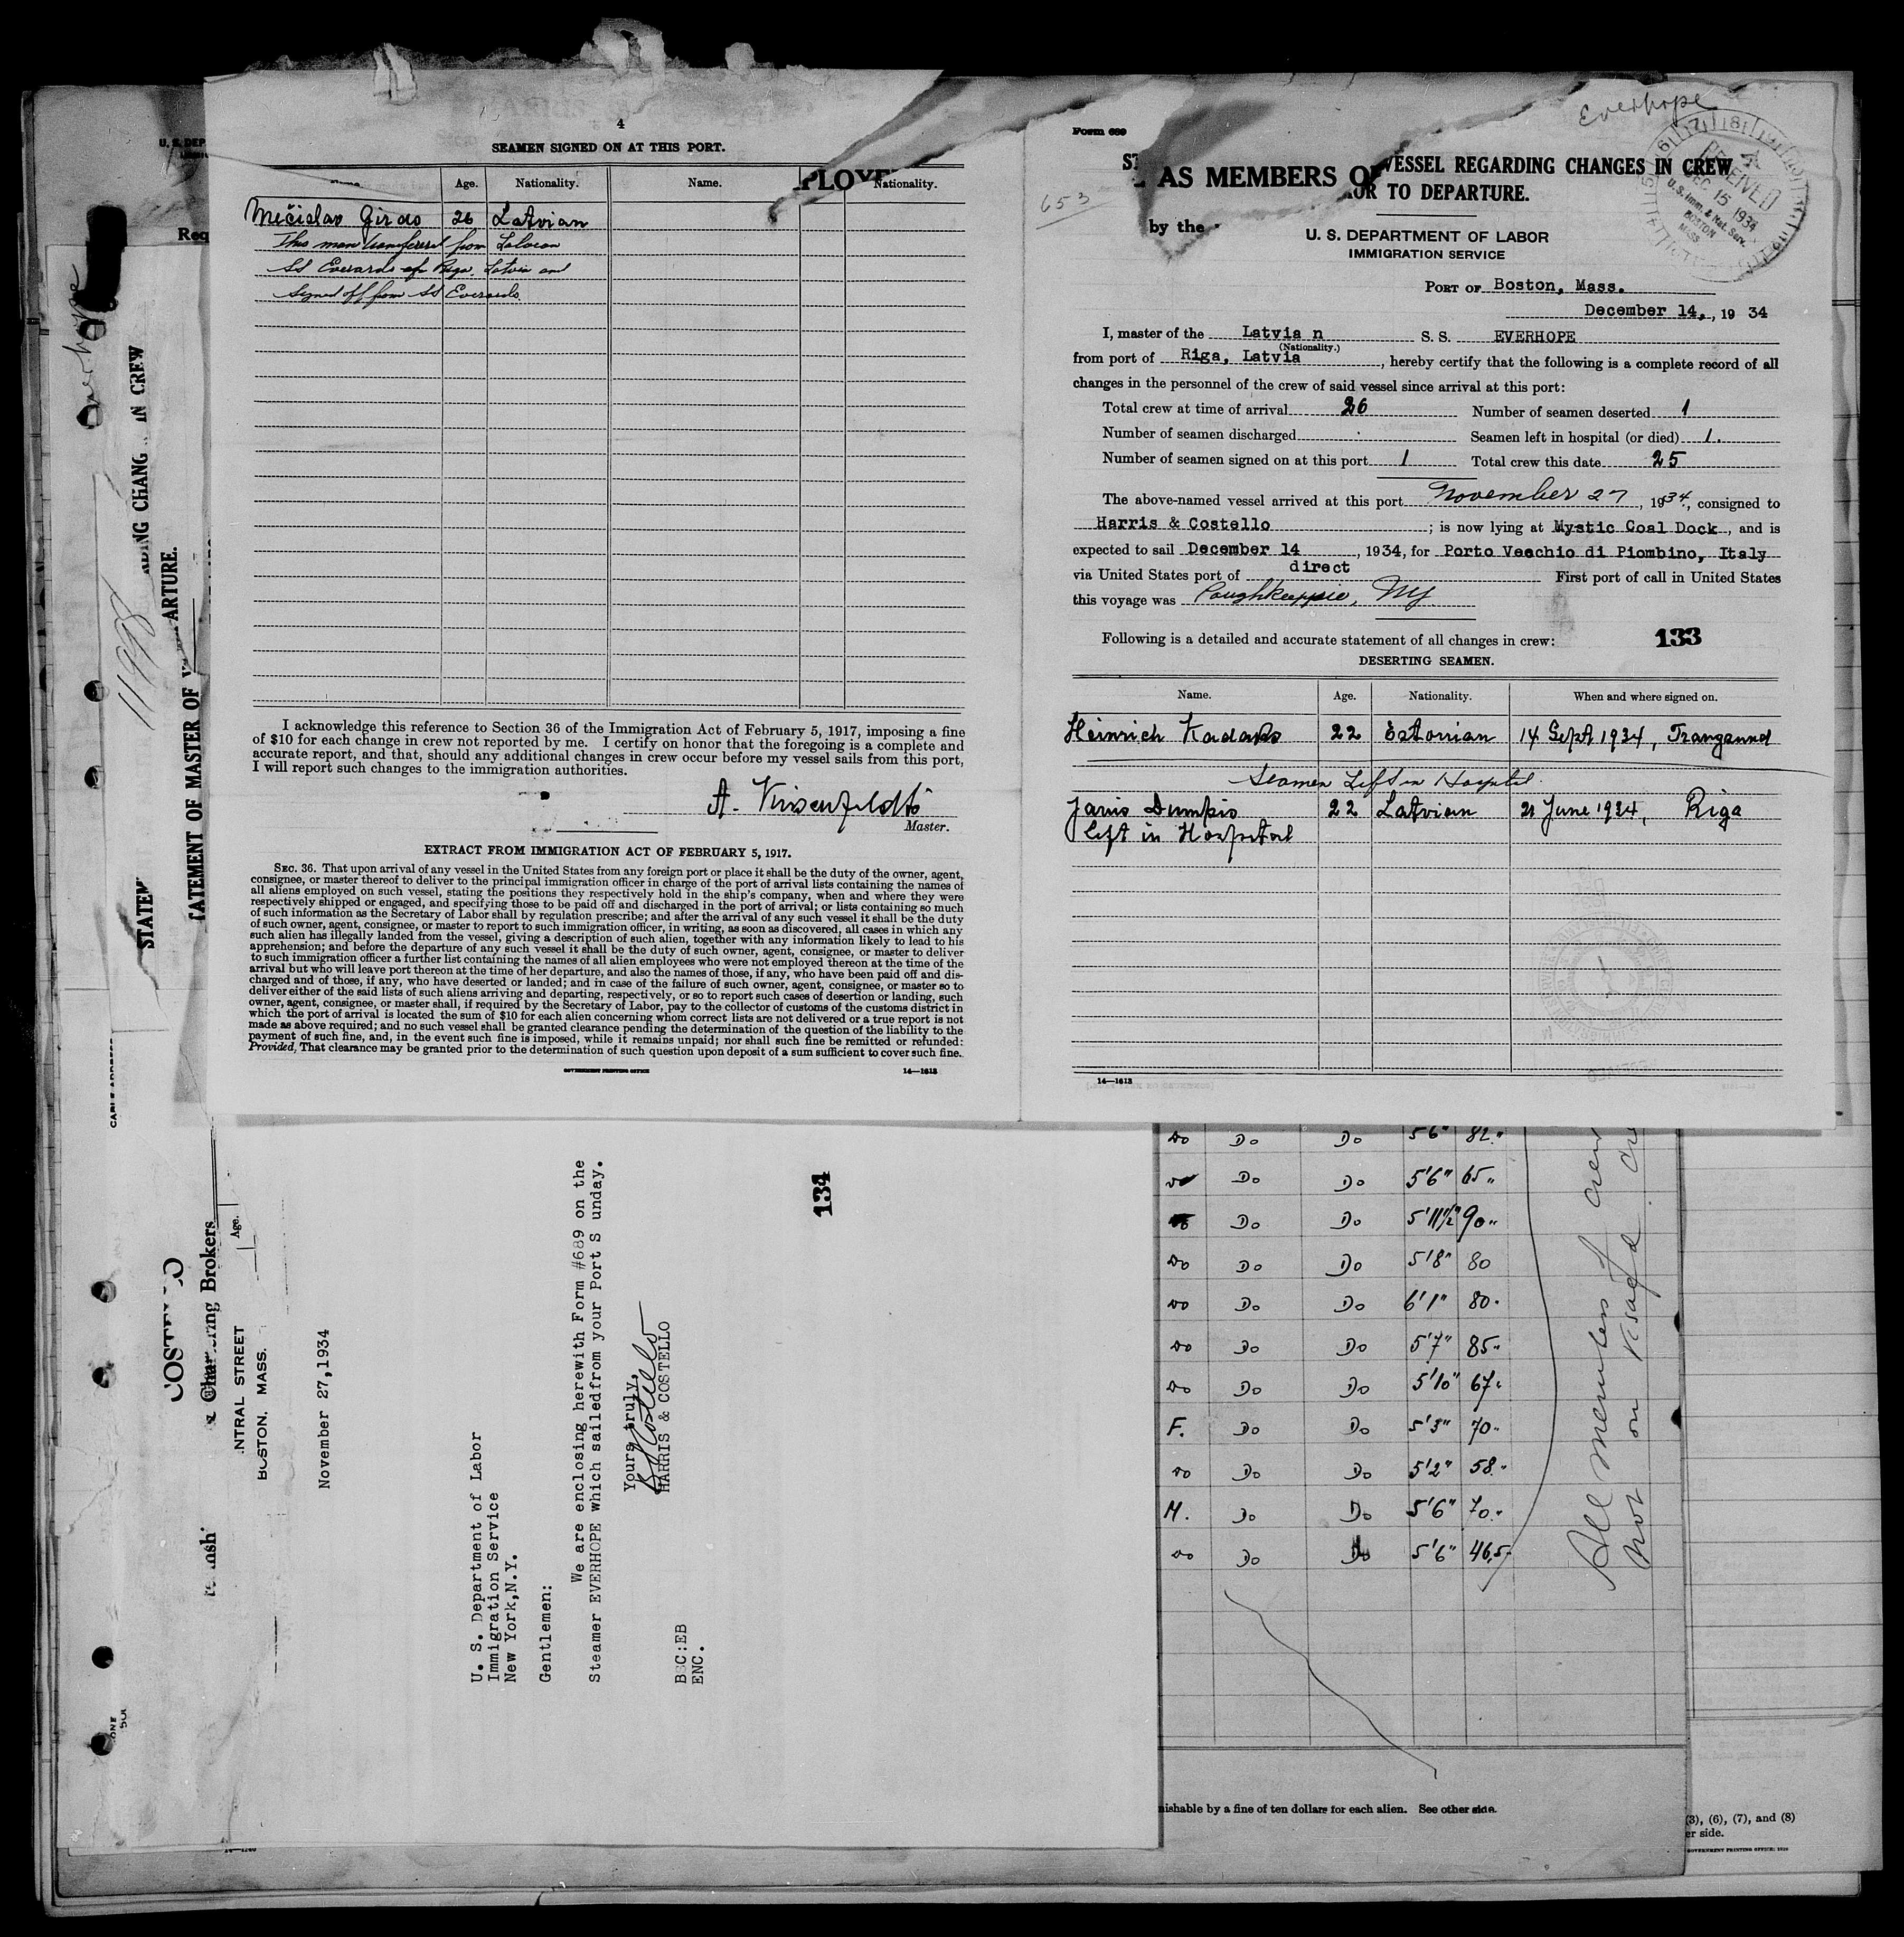 4
SEAMEN SIGNED ON AT THIS PORT.
Age. Nationality. Name. Nationality.
Mečislav Girdo 26 Latvian
This man transferred from Latvian
SS Everards of Riga, Latvia and
Signed off from SS Everards
I acknowledge this reference to Section 36 of the Immigration Act of February 5, 1917, imposing a fine
of $10 for each change in crew not reported by me. I certify on honor that the foregoing is a complete and
accurate report, and that, should any additional changes in crew occur before my vessel sails from this port,
I will report such changes to the immigration authorities.
A.
Master.
EXTRACT FROM IMMIGRATION ACT OF FEBRUARY 5, 1917.
SEC. 36. That upon arrival of any vessel in the United States from any foreign port or place it shall be the duty of the owner, agent,
consignee, or master thereof to deliver to the principal immigration officer in charge of the port of arrival lists containing the names of
all aliens employed on such vessel, stating the positions they respectively hold in the ship's company, when and where they were
respectively shipped or engaged, and specifying those to be paid off and discharged in the port of arrival; or lists containing so much
of such information as the Secretary of Labor shall by regulation prescribe; and after the arrival of any such vessel it shall be the duty
of such owner, agent, consignee, or master to report to such immigration officer, in writing, as soon as discovered, all cases in which any
such alien has illegally landed from the vessel, giving a description of such alien, together with any information likely to lead to his
apprehension; and before the departure of any such vessel it shall be the duty of such owner, agent, consignee, or master to deliver
to such immigration officer a further list containing the names of all alien employees who were not employed thereon at the time of the
arrival but who will leave port thereon at the time of her departure, and also the names of those, if any, who have been paid off and dis-
charged and of those, if any, who have deserted or landed; and in case of the failure of such owner, agent, consignee, or master so to
deliver either of the said lists of such aliens arriving and departing, respectively, or so to report such cases of desertion or landing, such
owner, agent, consignee, or master shall, if required by the Secretary of Labor, pay to the collector of customs of the customs district in
which the port of arrival is located the sum of $10 for each alien concerning whom correct lists are not delivered or a true report is not
made as above required; and no such vessel shall be granted clearance pending the determination of the question of the liability to the
payment of such fine, and, in the event such fine is imposed, while it remains unpaid; nor shall such fine be remitted or refunded:
Provided, That clearance may be granted prior to the determination of such question upon deposit of a sum sufficient to cover such fine.
GOVERNMENT PRINTING OFFICE 14—1613
Everhope
Form 689
653
VESSEL REGARDING CHANGES IN CREW
AS MEMBERS OF
TO DEPARTURE.
by the
RECEIVED
DEC 15 1934
U.S. Imm. & Nat. Serv.
BOSTON
MASS
U. S. DEPARTMENT OF LABOR
IMMIGRATION SERVICE
PORT OF Boston, Mass.
December 14, , 19 34
I, master of the Latvia n S. S. EVERHOPE
(Nationality.)
from port of Riga, Latvia , hereby certify that the following is a complete record of all
changes in the personnel of the crew of said vessel since arrival at this port:
Total crew at time of arrival 26 Number of seamen deserted 1
Number of seamen discharged Seamen left in hospital (or died) 1.
Number of seamen signed on at this port 1 Total crew this date 25
The above-named vessel arrived at this port November 27 , 1934, consigned to
Harris & Costello ; is now lying at Mystic Coal Dock , and is
expected to sail December 14 , 1934, for Porto Vecchio di Piombino, Italy
via United States port of direct First port of call in United States
this voyage was Poughkeepsie, NY
Following is a detailed and accurate statement of all changes in crew: 133
DESERTING SEAMEN.
Name. Age. Nationality. When and where signed on.
Heinrich Kadaks 22 Estonian 14 Sept 1934, Trangsund
Seamen Left in Hospital
Janis Dumpis 22 Latvian 21 June 1934, Riga
left in Hospital
14—1613
Everhope
CHANG IN CREW
ARTURE.
STATEM
TATEMENT OF MASTER OF
Age.
CABLE ADDRESS
COSTELLO
Chartering Brokers
NTRAL STREET
BOSTON. MASS.
November 27,1934
U. S. Department of Labor
Immigration Service
New York,N.Y.
Gentlemen:
We are enclosing herewith Form #689 on the
Steamer EVERHOPE which sailedfrom your Port S unday.
Yours truly,
B S Costello
HARRIS & COSTELLO
BSC:EB
ENC.
134
Do Do Do 5'6" 82"
Do Do Do 5'6" 65"
Do Do 5'11½" 90"
Do Do Do 5'8" 80
Do Do Do 6'1" 80"
Do Do Do 5'7" 85"
Do Do Do 5'10" 67"
F. Do Do 5'3" 70"
Do Do Do 5'2" 58"
M. Do Do 5'6" 70"
Do Do Do 5'6" 46,5"
All members of crew
not on visaed
nishable by a fine of ten dollars for each alien. See other side.
(3), (6), (7), and (8)
er side.
GOVERNMENT PRINTING OFFICE